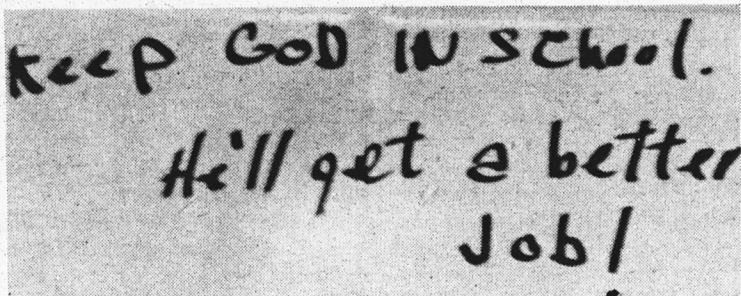 Keep GOD IN School.
He'll get a better
Job!